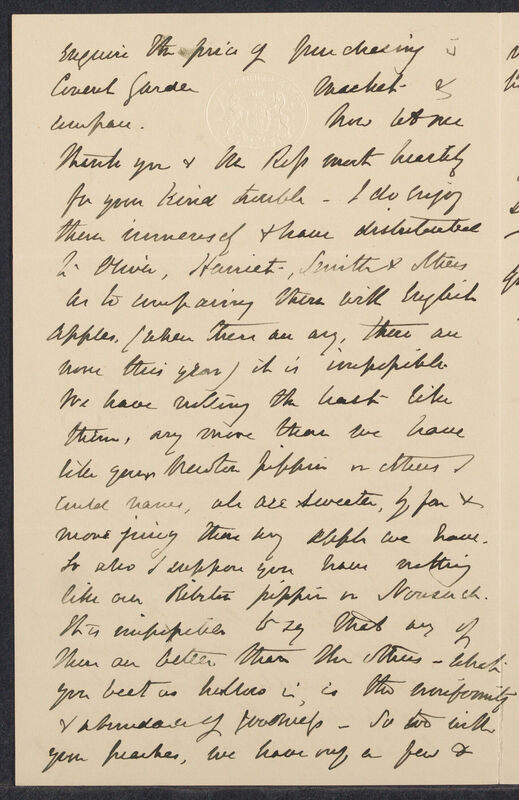 enquire the price of purchasing in
Covent Garden Market &
compare. Now let me
thank you & the Reps most heartily
for your kind trouble - I do enjoy
them immensely & have distributed
to Oliver, Harriet, Smith & others
As to comparing them with English
Apples, (when there are any, there are
none this year) it is impossible
We have nothing the least like
them, any more than we have
like your Newton pippin or others I
could name, all are sweeter, by far &
more juicy than any apple we have.
So also I suppose you have nothing
like our Ribston pippin or Nonsuch.
It is impossible to say that any of
them are better than the others - what
you beat us hollow in, is the uniformity
& abundance of goodness - So too with
your peaches, we have only a few &